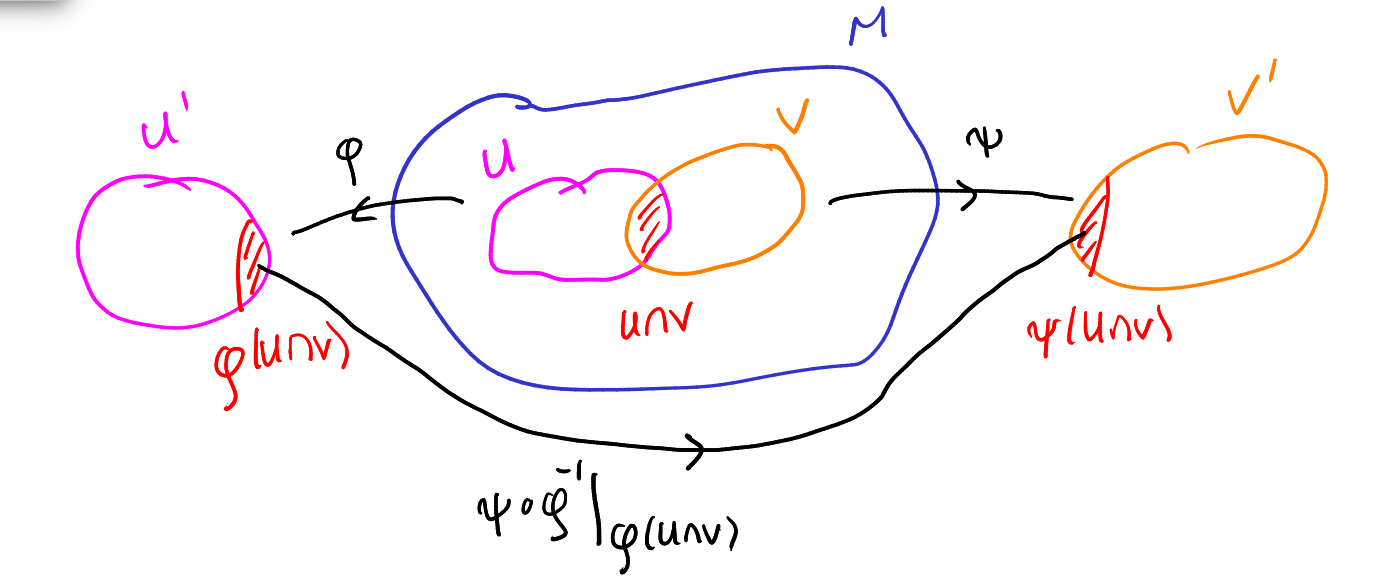 M
U'
φ
U
V
ψ
V'
U∩V
φ(U∩V)
ψ(U∩V)
ψ∘φ⁻¹|φ(U∩V)